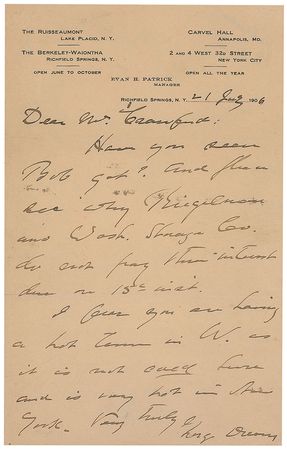 THE RUISSEAUMONT
LAKE PLACID, N. Y.
THE BERKELEY-WAIONTHA
RICHFIELD SPRINGS, N. Y.
OPEN JUNE TO OCTOBER
CARVEL HALL
ANNAPOLIS, MD.
2 AND 4 WEST 32D STREET
NEW YORK CITY
OPEN ALL THE YEAR
EVAN H. PATRICK
MANAGER
RICHFIELD SPRINGS, N. Y. 21 1906
Dear Mr. Crawford:
Have you seen
Bob and please
see why
and Wash. Storage Co.
do not pay their interest
due on 15th inst.
I fear you are having
a hot time in W. as
it is not cool here
and is very hot in New
York. Very truly
George Dewey